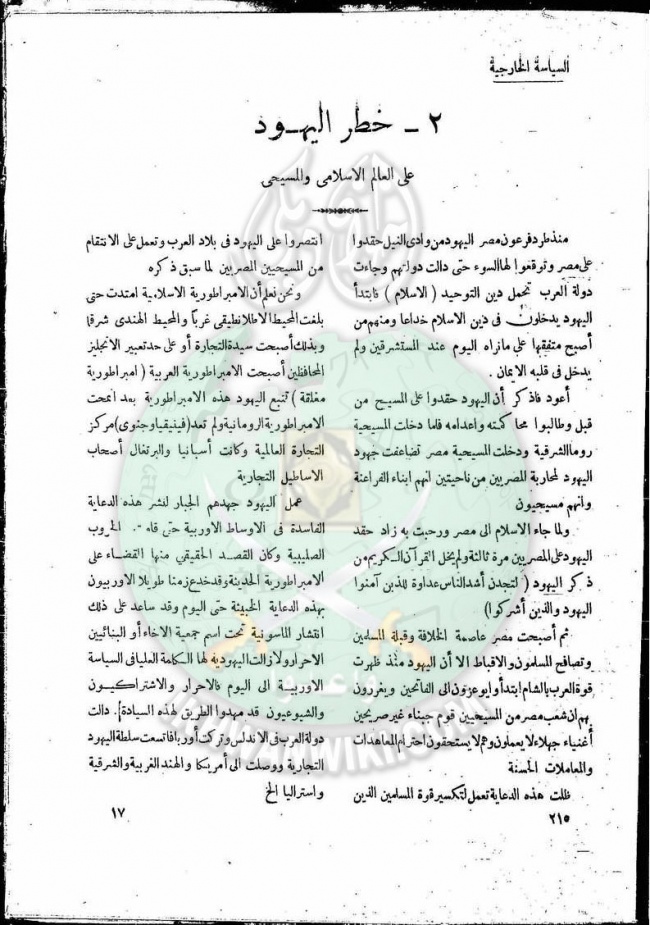 السياسة الخارجية
٢ - خطر اليهود
على العالم الاسلامى والمسيحى
منذ طرد فرعون مصر اليهود من وادى النيل حقدوا
على مصر وتوقعوا لها السوء حتى دالت دولتهم وجاءت
دولة العرب تحمل دين التوحيد ( الاسلام ) فابتدأ
اليهود يدخلون فى دين الاسلام خداعا ومنهم من
أصبح متفقها على مانراه اليوم عند المستشرقين ولم
يدخل فى قلبه الايمان .
أعود فاذكر أن اليهود حقدوا على المسيح من
قبل وطالبوا محاكمته واعدامه فلما دخلت المسيحية
روما الشرقية ودخلت المسيحية مصر تضاعفت جهود
اليهود لمحاربة المصريين من ناحيتين انهم ابناء الفراعنة
وانهم مسيحيون
ولما جاء الاسلام الى مصر ورحبت به زاد حقد
اليهود على المصريين مرة ثالثة ولم يخل القرآن الكريم من
ذكر اليهود ( لتجدن أشد الناس عداوة للذين آمنوا
اليهود والذين أشركوا )
ثم أصبحت مصر عاصمة الخلافة وقبلة المسلمين
وتصافح المسلمون والاقباط الا أن اليهود منذ ظهرت
قوة العرب بالشام ابتدأوا يوعزون الى الفاتحين ويغررون
بهم ان شعب مصر من المسيحيين قوم جبناء غير صريحين
أغنياء جهلاء لا يعملون وهم لا يستحقون احترام المعاهدات
والمعاملات الحسنة
ظلت هذه الدعاية تعمل لتكسير قوة المسلمين الذين
انتصروا على اليهود فى بلاد العرب وتعمل على الانتقام
من المسيحيين المصريين لما سبق ذكره
ونحن نعلم أن الامبراطورية الاسلامية امتدت حتى
بلغت المحيط الاطلانطيقى غرباً والمحيط الهندى شرقا
وبذلك أصبحت سيدة التجارة أو على حد تعبير الانجليز
المحافظين أصبحت الامبراطورية العربية ( امبراطورية
مغلقة ) تتبع اليهود هذه الامبراطورية بعد انمحت
الامبراطورية الرومانية ولم تعد ( فينيقيا وجنوى ) مركز
التجارة العالمية وكانت أسبانيا والبرتغال أصحاب
الاساطيل التجارية
عمل اليهود جهدهم الجبار لنشر هذه الدعاية
الفاسدة فى الاوساط الاوربية حتى الحروب
الصليبية وكان القصد الحقيقى منها القضاء على
الامبراطورية الحديثة وقد خدع زمنا طويلا الاوربيون
بهذه الدعاية الخبيثة حتى اليوم وقد ساعد على ذلك
انتشار الماسونية تحت اسم جمعية الاخاء أو البنائيين
الاحرار ولا زالت اليهوديه لها الكلمة العليا فى السياسة
الاوربية الى اليوم فالاحرار والاشتراكيون
والشيوعيون قد مهدوا الطريق لهذه السيادة . دالت
دولة العرب فى الاندلس وتركت أوربا فاتسعت سلطة اليهود
التجارية ووصلت الى أمريكا والهند الغربية والشرقية
واستراليا الخ
١٧
٢١٥
IKHWANWIKI.COM